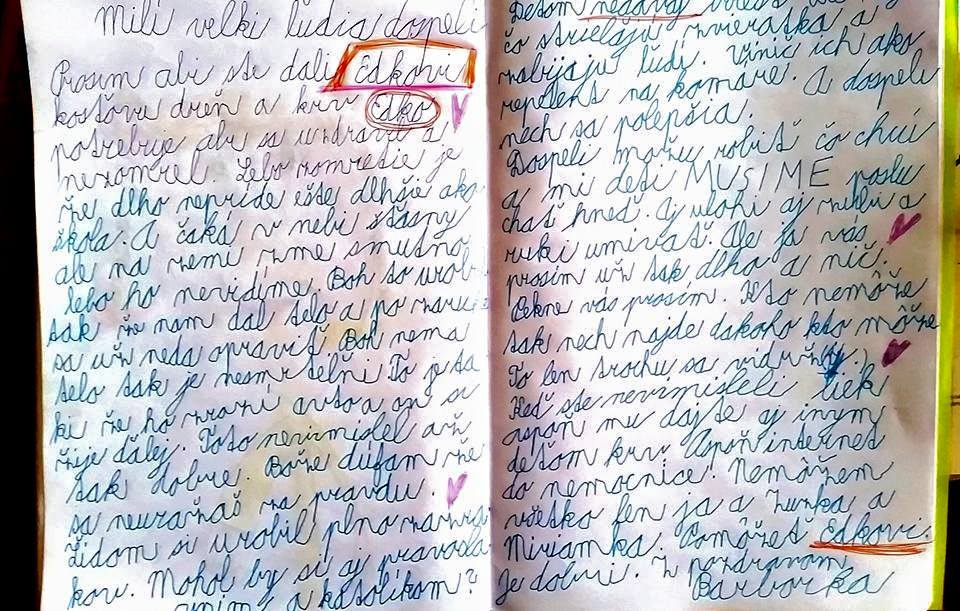 Milí velkí ludia dospeli
Prosim abi ste dali Edkovi
kostnu dreň a krv Edko
potrebuje abi sa uzdravil a
nezomrel. Lebo zomretie je
že dlho nepríde ešte dlhšie ako
škola. A čaká v nebi štastny
ale na zemi zme smutnó
lebo ho nevidíme. Boh to urobi
tak že nam dal telo a po
sa už neda opraviť. Boh nema
telo tak je nesmrtelni. To je ta
ki že ho zrazí auto a on si
žije ďalej. Toto nevimislel až
tak dobre. Bože dúfam že
sa neurážaš za pravdu.
Židom si urobil plno
kov. Mohol by si aj pravosla
a katolíkom?
Deťom nedávaj
čo strielajú zvieratka a
zabijajú ludí. Znič ich ako
repelent na komare. A dospeli
nech sa polepšia.
Dospeli možu robiť čo chcú
a mi deti MUSIME poslu
chať hneď. Aj ulohi aj zubi a
ruki umívať. Ale ja vás
prosim už tak dlho a nič.
Pekne vás prosím. Kto nemôže
tak nech najde dakoho kto môže
To len trochu sa vidrží.
Keď ste nevimisleli liek
aspoň mu dajte aj inym
deťom krv. Aspoň internet
do nemocnice. Nemôžem
všetko len ja a Zunka a
Miriamka. Pomôžeš Edkovi.
Je dobri. Z pozdravom
Barborka